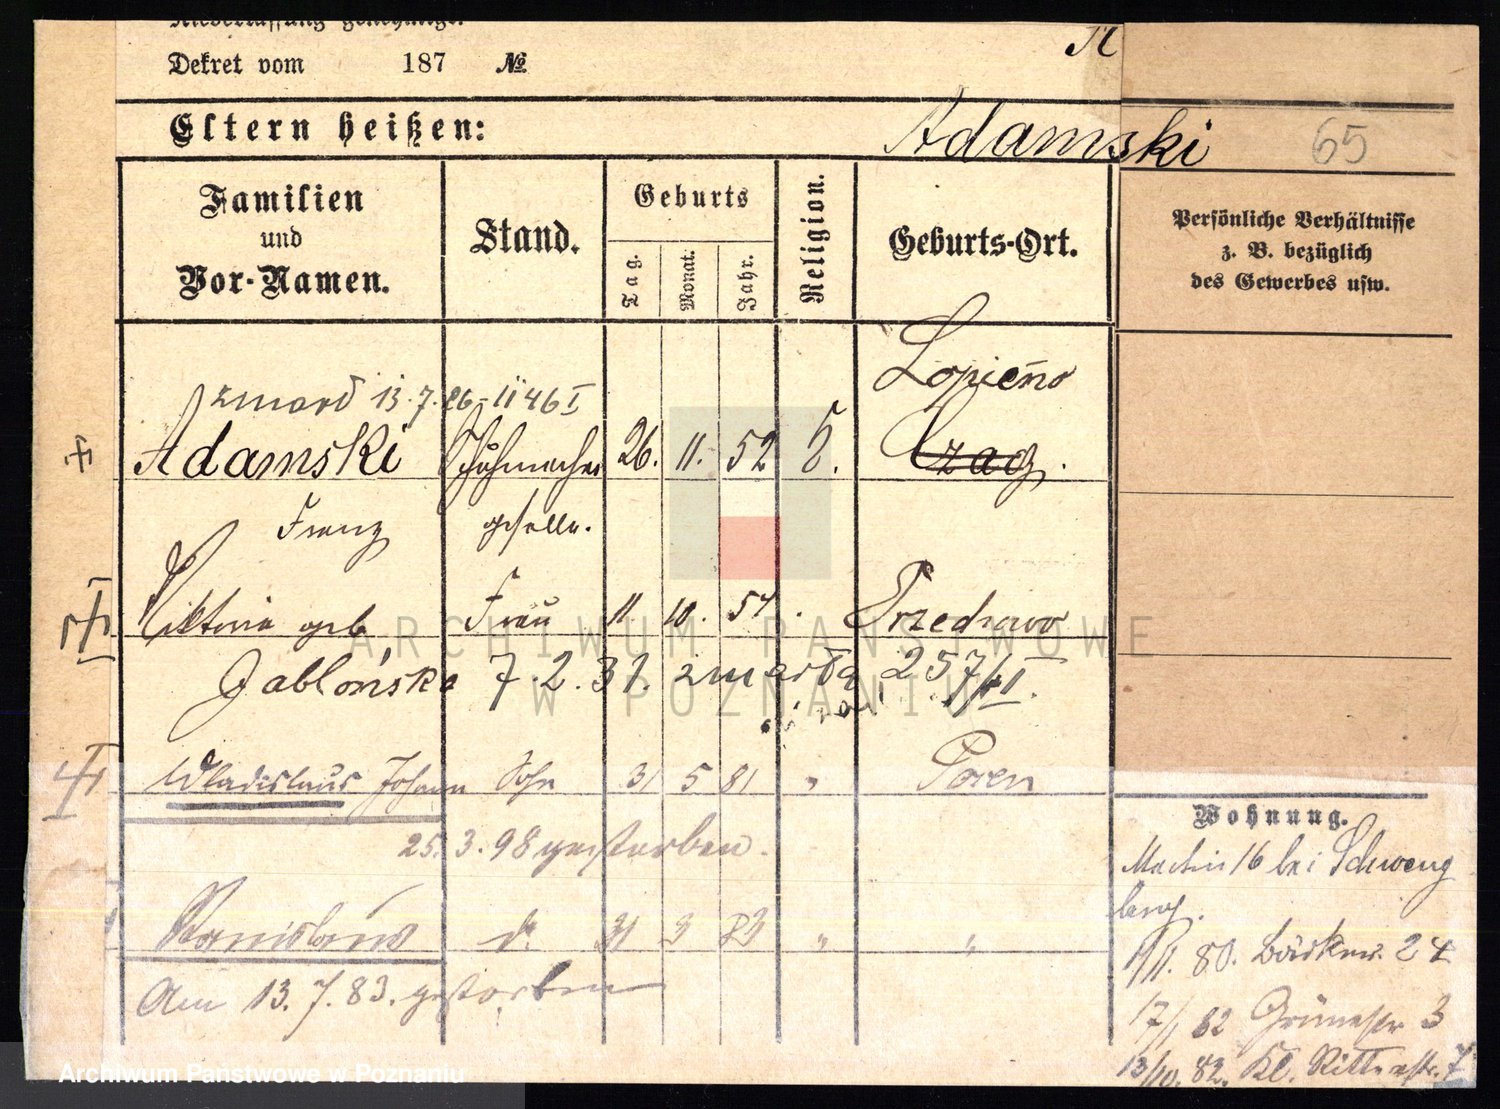 Niederlassung genehmigt.
Dekret vom 187 №
Eltern heißen:
Adamski 65
Familien und Vor-Namen.
Stand.
Geburts
Tag. Monat. Jahr.
Religion.
Geburts-Ort.
Persönliche Verhältnisse
z. B. bezüglich
des Gewerbes usw.
Lopieno
zmarł 13.7.26 - 1146 I
Adamski Schuhmacher 26. 11. 52
Franz geselle.
Wiktoria geb Frau 11 10. 57. Przedrowo
Jablońska 7.2.31. zmarła 257/II.
Wladislaus Johann Sohn 31 5 81 " Posen
25.3.98 gestorben.
Stanislaus do 31 3 83 " "
Am 13.7.83. gestorben
Wohnung.
Martin 16 bei Schweng
berg.
80. Bäckerstr. 24
17/1 82 Grünestr 3
13/10. 82. Kl. Ritterstr. 7
ARCHIWUM PAŃSTWOWE
W POZNANIU
Archiwum Państwowe w Poznaniu